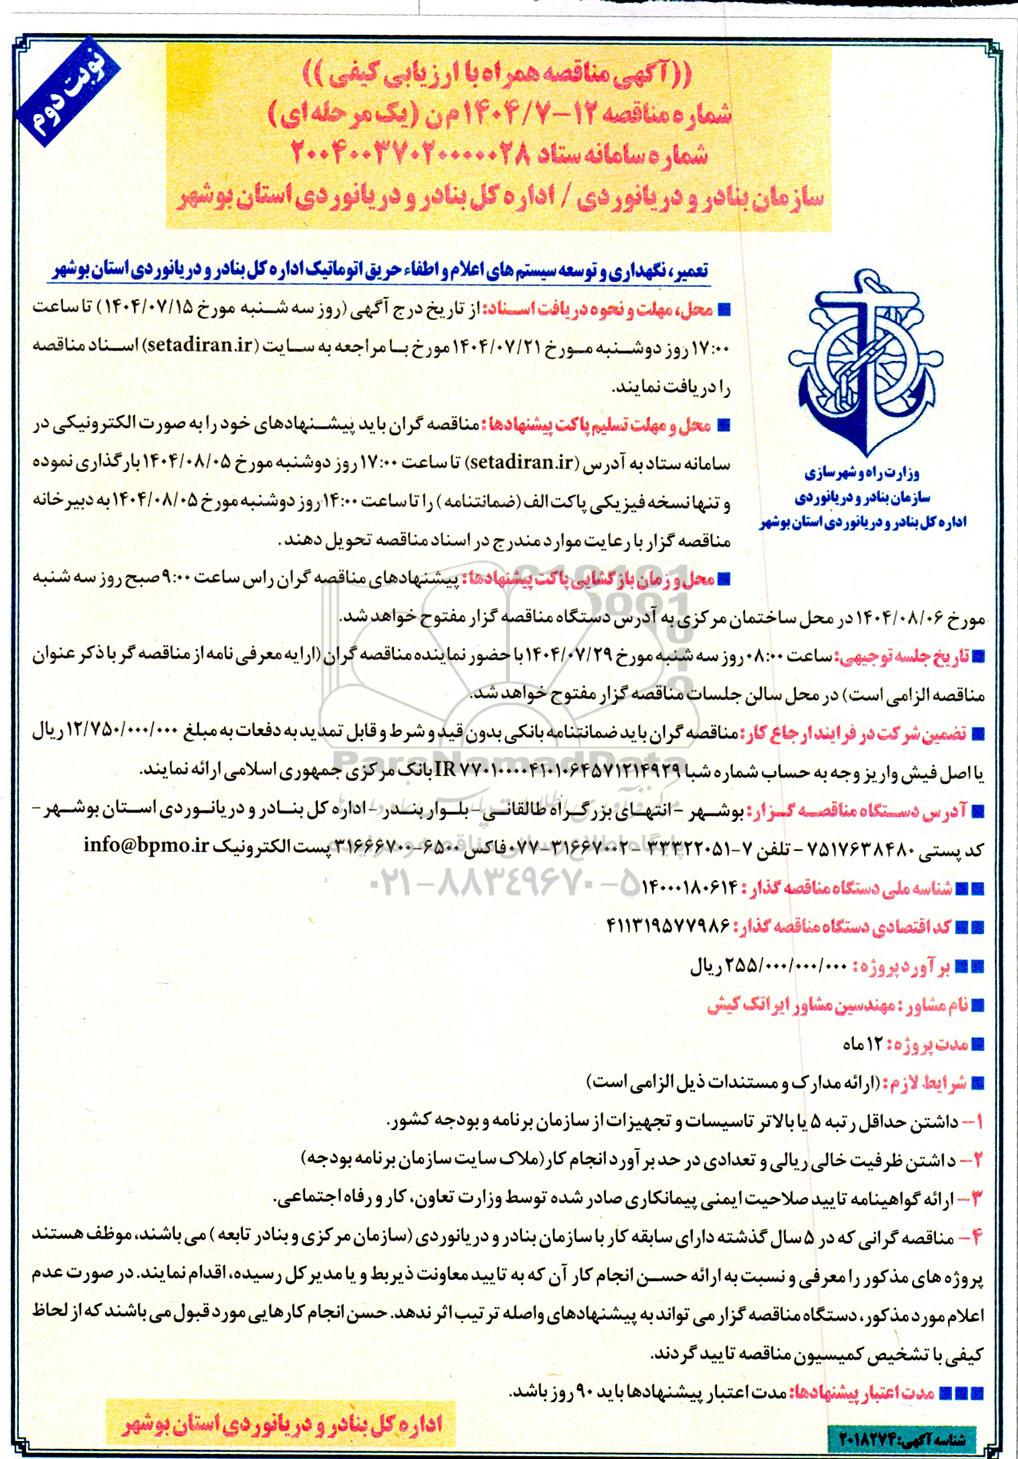 نوبت دوم
((آگهی مناقصه همراه با ارزیابی کیفی))
شماره مناقصه ۱۲-۱۴۰۴/۷ م ن (یک مرحله ای)
شماره سامانه ستاد ۲۰۰۴۰۰۳۷۰۲۰۰۰۰۰۲۸
سازمان بنادر و دریانوردی / اداره کل بنادر و دریانوردی استان بوشهر
تعمیر، نگهداری و توسعه سیستم های اعلام و اطفاء حریق اتوماتیک اداره کل بنادر و دریانوردی استان بوشهر
وزارت راه و شهرسازی
سازمان بنادر و دریانوردی
اداره کل بنادر و دریانوردی استان بوشهر
■ محل، مهلت و نحوه دریافت اسناد: از تاریخ درج آگهی (روز سه شنبه مورخ ۱۴۰۴/۰۷/۱۵) تا ساعت
۱۷:۰۰ روز دوشنبه مورخ ۱۴۰۴/۰۷/۲۱ مورخ با مراجعه به سایت (setadiran.ir) اسناد مناقصه
را دریافت نمایند.
■ محل و مهلت تسلیم پاکت پیشنهادها: مناقصه گران باید پیشنهادهای خود را به صورت الکترونیکی در
سامانه ستاد به آدرس (setadiran.ir) تا ساعت ۱۷:۰۰ روز دوشنبه مورخ ۱۴۰۴/۰۸/۰۵ بارگذاری نموده
و تنها نسخه فیزیکی پاکت الف (ضمانتنامه) را تا ساعت ۱۴:۰۰ روز دوشنبه مورخ ۱۴۰۴/۰۸/۰۵ به دبیرخانه
مناقصه گزار با رعایت موارد مندرج در اسناد مناقصه تحویل دهند.
■ محل و زمان بازگشایی پاکت پیشنهادها: پیشنهادهای مناقصه گران راس ساعت ۹:۰۰ صبح روز سه شنبه
مورخ ۱۴۰۴/۰۸/۰۶ در محل ساختمان مرکزی به آدرس دستگاه مناقصه گزار مفتوح خواهد شد.
■ تاریخ جلسه توجیهی: ساعت ۰۸:۰۰ روز سه شنبه مورخ ۱۴۰۴/۰۷/۲۹ با حضور نماینده مناقصه گران (ارایه معرفی نامه از مناقصه گر با ذکر عنوان
مناقصه الزامی است) در محل سالن جلسات مناقصه گزار مفتوح خواهد شد.
■ تضمین شرکت در فرایند ارجاع کار: مناقصه گران باید ضمانتنامه بانکی بدون قید و شرط و قابل تمدید به دفعات به مبلغ ۱۲/۷۵۰/۰۰۰/۰۰۰ ریال
یا اصل فیش واریز وجه به حساب شماره شبا IR۷۷۰۱۰۰۰۰۴۱۰۱۰۶۴۵۷۱۲۱۴۹۲۹ بانک مرکزی جمهوری اسلامی ارائه نمایند.
■ آدرس دستگاه مناقصه گزار: بوشهر - انتهای بزرگراه طالقانی - بلوار بندر - اداره کل بنادر و دریانوردی استان بوشهر -
کد پستی ۷۵۱۷۶۳۸۴۸۰ - تلفن ۷-۳۳۳۲۲۰۵۱ - ۰۷۷-۳۱۶۶۷۰۰۲ فاکس ۶۵۰۰-۳۱۶۶۶۷۰۰ پست الکترونیک info@bpmo.ir
■■ شناسه ملی دستگاه مناقصه گذار: ۱۴۰۰۰۱۸۰۶۱۴
■■ کد اقتصادی دستگاه مناقصه گذار: ۴۱۱۳۱۹۵۷۷۹۸۶
■■ برآورد پروژه: ۲۵۵/۰۰۰/۰۰۰/۰۰۰ ریال
■ نام مشاور: مهندسین مشاور ایراتک کیش
■ مدت پروژه: ۱۲ ماه
■ شرایط لازم: (ارائه مدارک و مستندات ذیل الزامی است)
۱- داشتن حداقل رتبه ۵ یا بالاتر تاسیسات و تجهیزات از سازمان برنامه و بودجه کشور.
۲- داشتن ظرفیت خالی ریالی و تعدادی در حد برآورد انجام کار (ملاک سایت سازمان برنامه بودجه)
۳- ارائه گواهینامه تایید صلاحیت ایمنی پیمانکاری صادر شده توسط وزارت تعاون، کار و رفاه اجتماعی.
۴- مناقصه گرانی که در ۵ سال گذشته دارای سابقه کار با سازمان بنادر و دریانوردی (سازمان مرکزی و بنادر تابعه) می باشند، موظف هستند
پروژه های مذکور را معرفی و نسبت به ارائه حسن انجام کار آن که به تایید معاونت ذیربط و یا مدیر کل رسیده، اقدام نمایند. در صورت عدم
اعلام مورد مذکور، دستگاه مناقصه گزار می تواند به پیشنهادهای واصله ترتیب اثر ندهد. حسن انجام کارهایی مورد قبول می باشند که از لحاظ
کیفی با تشخیص کمیسیون مناقصه تایید گردند.
■■■ مدت اعتبار پیشنهادها: مدت اعتبار پیشنهادها باید ۹۰ روز باشد.
اداره کل بنادر و دریانوردی استان بوشهر
شناسه آگهی: ۲۰۱۸۲۷۴
ParsNamadData
۰۲۱-۸۸۳۴۹۶۷۰-۵